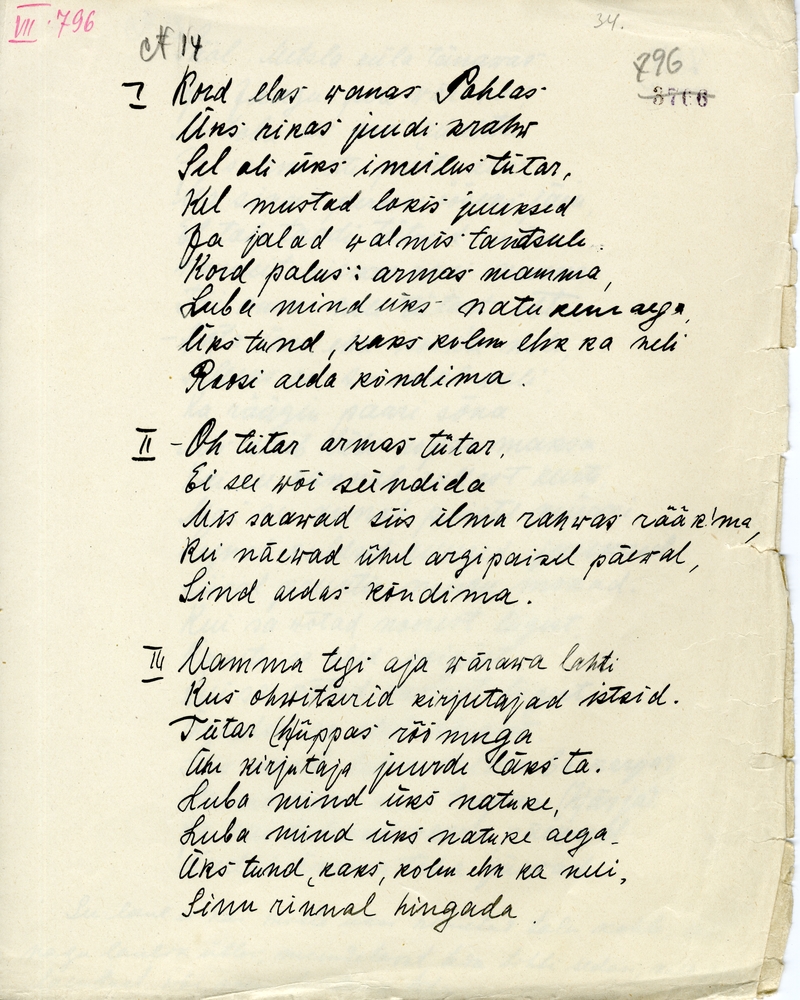 VII. 796
34.
№ 14
796
3766
I Kord elas wanas Pohlas
Üks rikas juudi krahw
Sel oli üks imeilus tütar,
Kel mustad lokis juuksed
Ja jalad walmis tantsule.
Kord palus: armas mamma,
Luba mind üks natukene aega,
Üks tund, kaks kolm ehk ka neli
Roosi aeda kõndima.
II - Oh tütar armas tütar,
Ei see wõi sündida
Mis saawad siis ilma rahwas rääk'ma,
Kui näewad ühel argipäisel päewal,
Sind aedas kõndima.
III Mamma tegi aja wärawa lahti
Kus ohwitserid kirjutajad istsid.
Tütar (h)üppas rõõmuga
Ühe kirjutaja juurde läks ta.
Luba mind üks natuke,
Luba mind üks natuke aega
Üks tund, kaks, kolm ehk ka neli,
Sinu rinnal hingada.